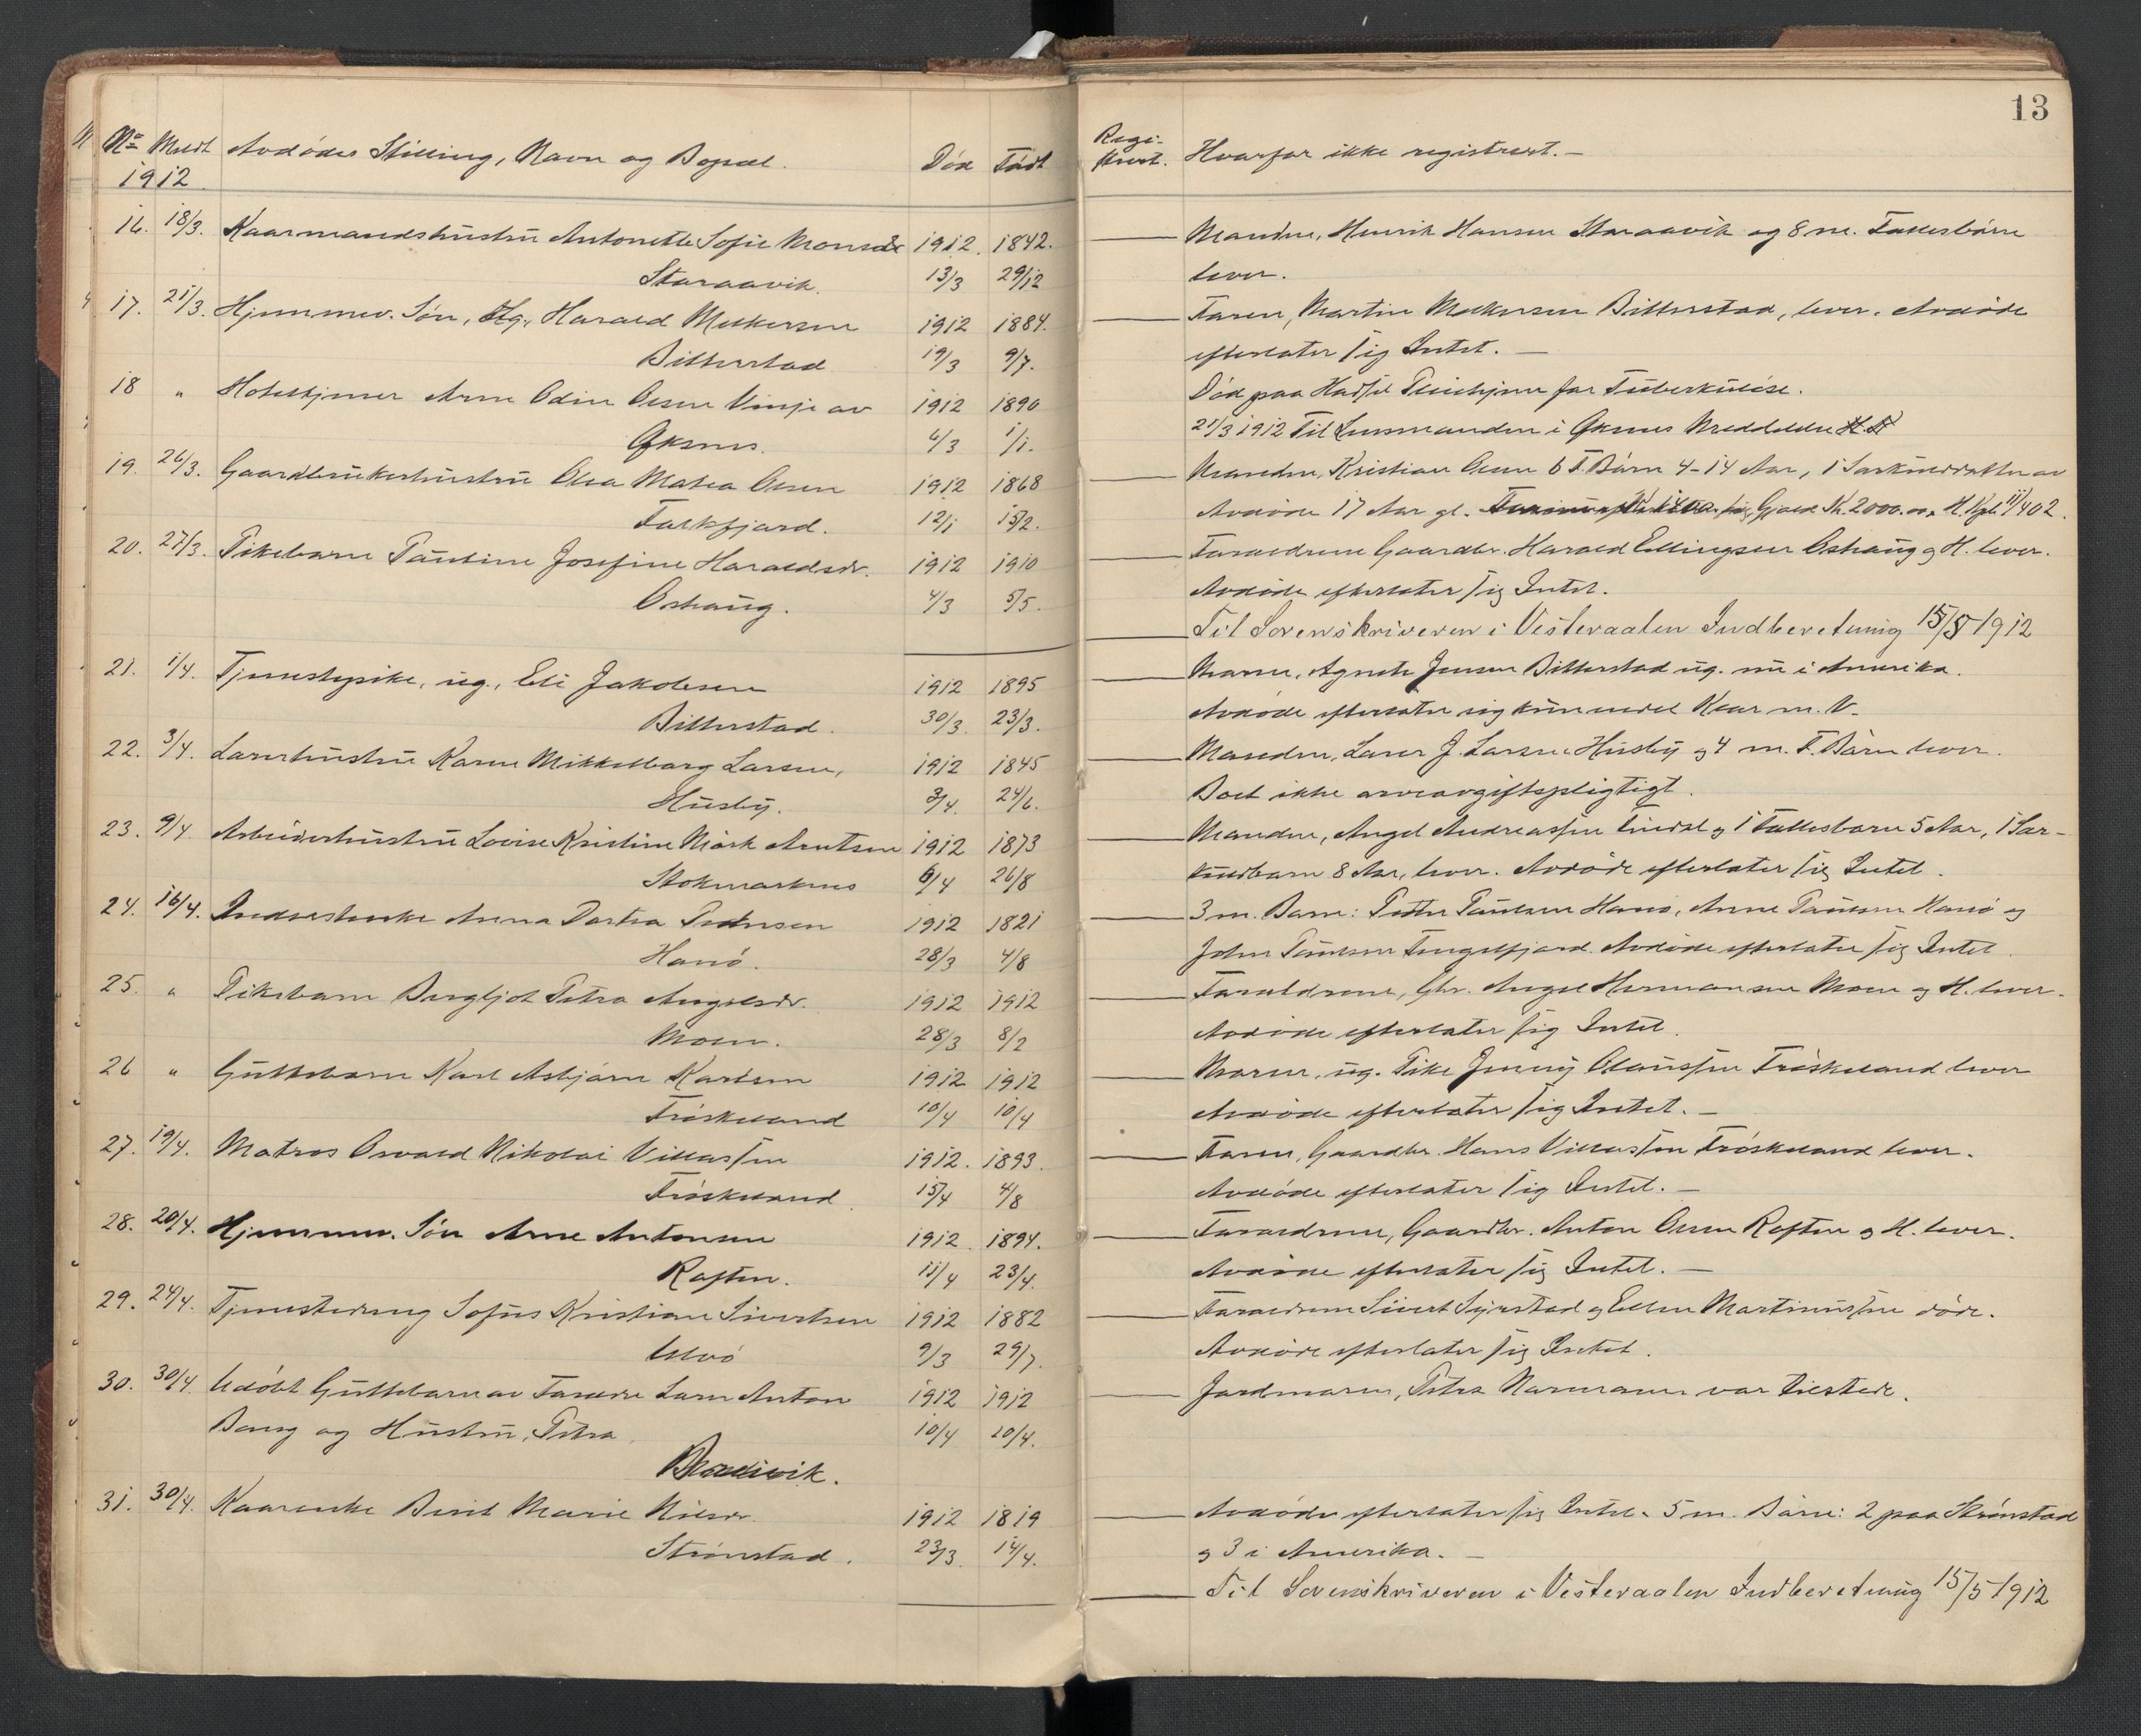 13
No Meldt Avdødes Stilling, Navn og Bopæl. Død Født Regi-
strert. Hvorfor ikke registrert.—
1912
16. 18/3. Kaarmandshustru Antonette Sofie Monsdr 1912. 1842. Manden, Henrik Hansen Staraavik og 8 m. Fællesbørn
Staraavik. 13/3 29/12 lever.
17. 21/3. Hjemmev. Søn, Harald Melkersen 1912 1884. Faren, Martin Melkersen Bitterstad, lever. Avdøde
Bitterstad 19/3 9/7. efterlater sig Intet.—
18 " Arne Odin Olsen Vinje av 1912 1890 Død paa Hadsel Pleiehjem for Tuberkuløse.
Øksnes. 6/3 1/1. 21/3 1912 Til Lensmanden i Øksnes
19. 26/3. Gaardbrukerhustru Olea Matea Olsen 1912 1868 Manden, Kristian Olsen 6 F. Børn 4-14 Aar, 1 av
Falkfjord. 12/1 15/2. Avdøde 17 Aar gl. Gjæld Kr. 2000.00 11/4 02.
20. 27/3. Pikebarn Pauline Josefine Haraldsdr. 1912 1910 Forældrene Gaardbr. Harald Ellingsen Oshaug og H. lever.
Oshaug. 4/3 5/5. Avdøde efterlater sig Intet.
Til Sorenskriveren i Vesteraalen Indberetning 15/5 1912
21. 1/4. Tjenestepike, ug., Eli Jakobsen 1912 1895 Moren, Agnete Jensen Bitterstad ug. nu i Amerika.
Bitterstad. 30/3. 23/3. Avdøde efterlater sig kun endel Klær m. V.
22. 3/4. Lærerhustru Karen Mikkelborg Larsen, 1912 1845 Manden, Lærer J. Larsen Husby og 4 m. F. Børn lever.
Husby. 3/4. 24/6. Boet ikke arveavgiftspligtigt.
23. 9/4 Arbeiderhustru Lovise Kristine Mørk Arntsen 1912 1873 Manden, Angel Andreassen og 1 Fællesbarn 5 Aar, 1 Sær-
Stokmarknes 6/4 26/8 kuldbarn 8 Aar, lever. Avdøde efterlater sig Intet.
24. 16/4. Indsesterenke Anna Dortea Pedersen 1912 1821 3 m. Barn: Petter Paulsen Hanø, Anne Paulsen Hanø og
Hanø. 28/3 4/8 John Paulsen Tengelfjord. Avdøde efterlater sig Intet.
25. " Pikebarn Bergljot Petra Angelsdr. 1912 1912 Forældrene, Gbr. Angel Hermansen Moen og H. lever.
Moen. 28/3 8/2 Avdøde efterlater sig Intet.
26 " Guttebarn Karl Asbjørn Karlsen 1912 1912 Moren, ug. Pike Jenny Olaussen Frøskeland lever
Frøskeland 10/4 10/4 Avdøde efterlater sig Intet.—
27. 19/4. Matros Osvald Nikolai Villassen 1912. 1893. Faren, Gaardbr. Hans Villassen Frøskeland lever.
Frøskeland 15/4 4/8 Avdøde efterlater sig Intet.—
28. 20/4. Hjemmev. Søn Arne Antonsen 1912. 1894. Forældrene, Gaardbr. Anton Olsen Roften og H. lever.
Roften. 11/4 23/4. Avdøde efterlater sig Intet.—
29. 24/4. Tjenestedreng Sofus Kristian Sivertsen 1912 1882 Forældrene Sivert Sivertstad og Ellen Martinussen døde.
Ulvø 9/3 29/7. Avdøde efterlater sig Intet.
30. 30/4. Udøbt Guttebarn av Lars Anton 1912 1912 Jordmoren, Petra Normann var tilstede.
Berg og Hustru, Petra 10/4 10/4.
31. 30/4. Kaarenke Berit Marie Nilsdr. 1912 1819 Avdøde efterlater sig Intet. 5 m. Børn: 2 paa Strønstad
Strønstad. 23/3. 14/4. og 3 i Amerika.—
Til Sorenskriveren i Vesteraalen Indberetning 15/5 1912